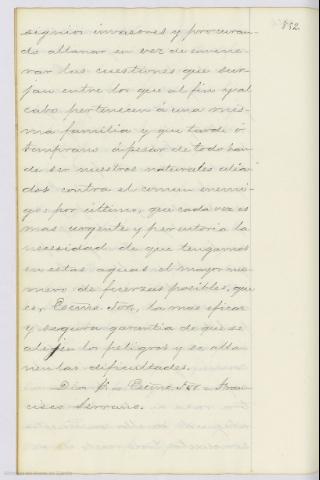 852.
signios invasores y procuran-
do allanar en vez de envene-
nar las cuestiones que sur-
jan entre los que al fin y al
cabo pertenecen á una mis-
ma familia y que tarde ó
temprano á pesar de todo han
de ser nuestros naturales alia-
dos contra el comun enemi-
go; por último, que cada vez es
mas urgente y perentoria la
necesidad de que tengamos
en estas aguas el mayor nu-
mero de fuerzas posibles, que
es, Excmo. Sor., la mas eficaz
y segura garantia de que se
alejen los peligros y se alla-
nen las dificultades.
Dios &. Excmo. Sor. Fran-
cisco Serrano.